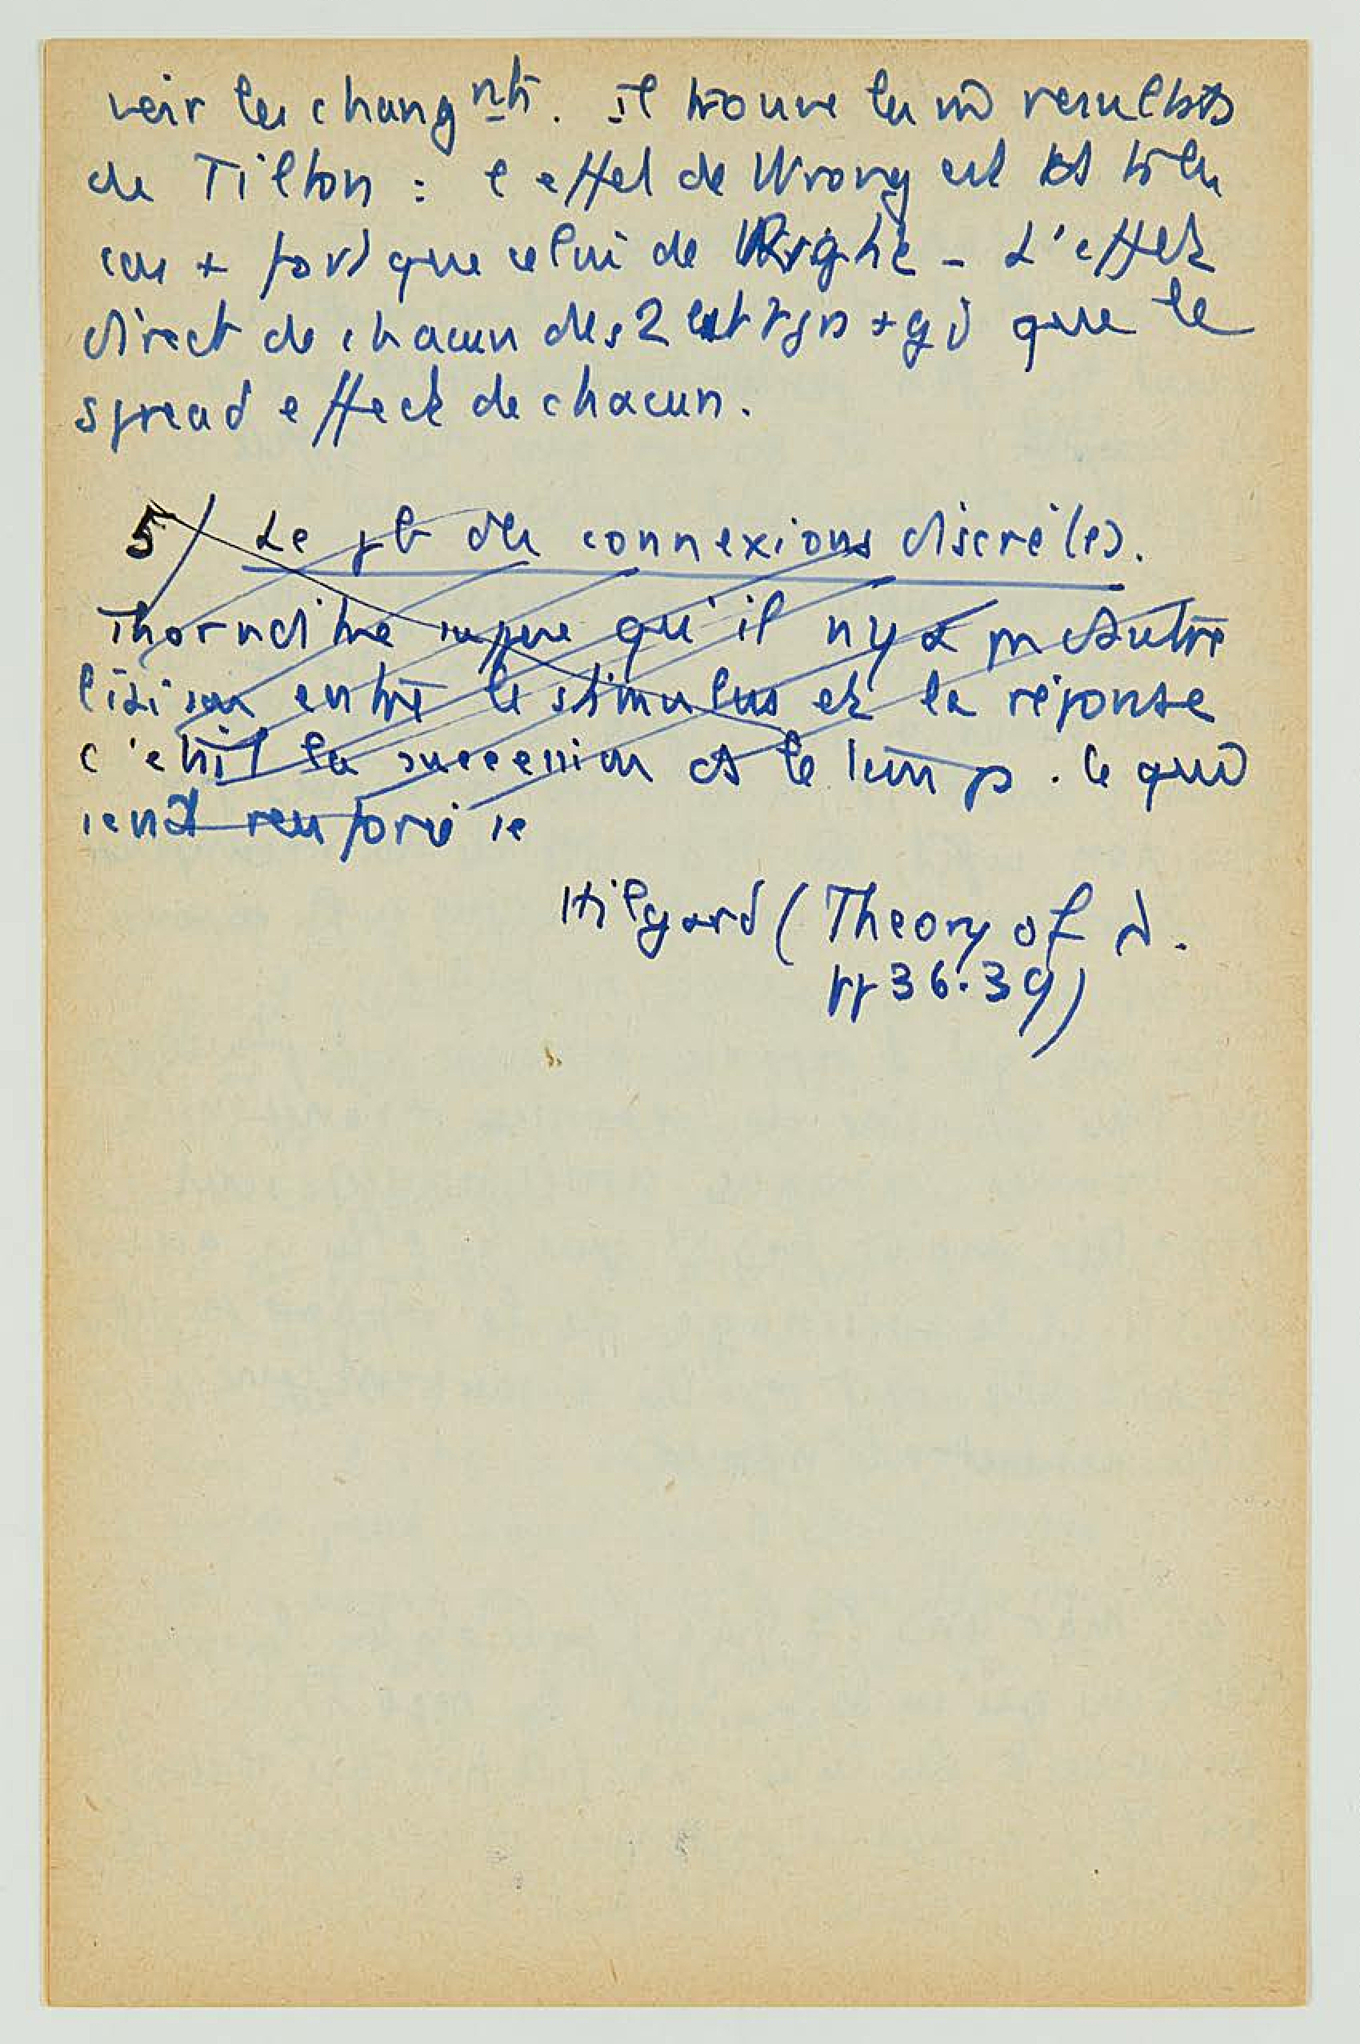 voir les changnts. Il trouve les m̂ resultats
de Tilton : l'effet de Wrong est ds
cas + fort que celui de Right - L'effet
direct de chacun des 2 est tjs + gd que le
spread effect de chacun.
5/ Le pb des connexions discrè(te).
Thorndike suppose qu'il n'y a pas d'autre
liaison entre le stimulus et la réponse
c'était la succession ds le temps. Ce qui
rend renforcé ce
Hilgard (Theory of
pp 36.39)